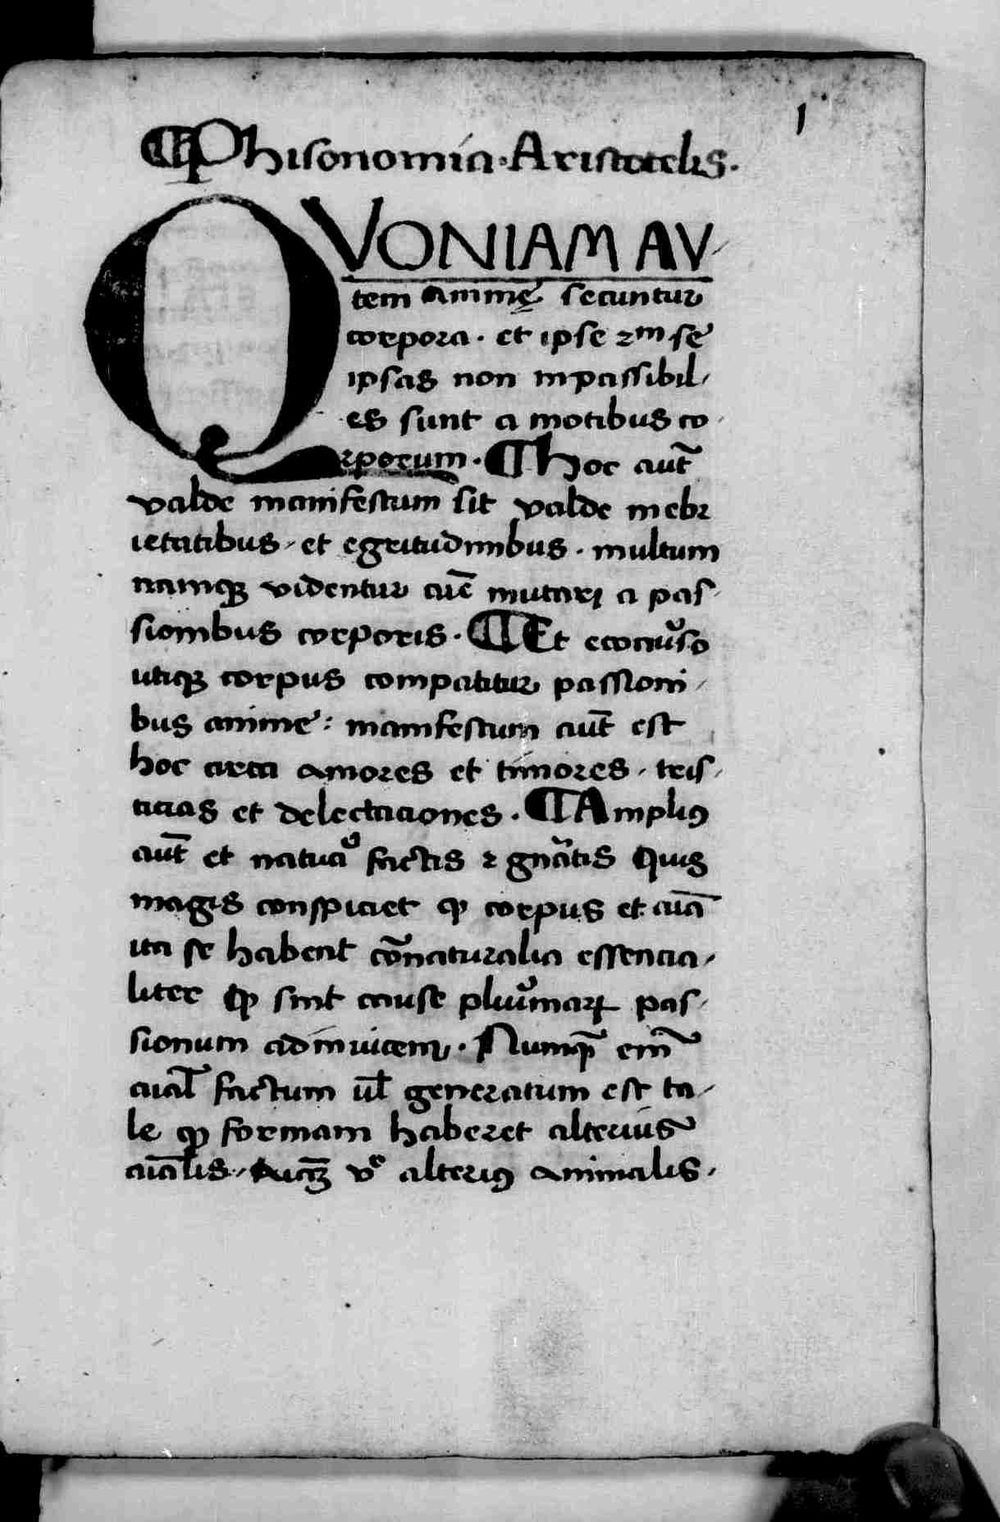 1
¶Phisonomia · Aristotelis.
QVONIAM AV-
tem Animę secuntur
corpora · et ipse scdm se
ipsas non inpassibil-
es sunt a motibus co-
rporum · ¶Hoc aut̃
valde manifestum sit valde in ebr
ietatibus - et egritudinibus · multum
namqꝫ videntur aīe mutari a pas-
sionibus corporis · ¶Et econũso
utiqꝫ corpus compatitur passioni-
bus anime : manifestum aut̃ est
hoc circa amores et timores - tris-
ticias et delectaciones · ¶Amplius
aut̃ et natura factis ⁊ gñatis Quis
magis conspiciet qꝫ corpus et aīa
ita se habent cõnaturalia essencia-
liter qꝫ sint cause plurimarꝝ pas-
sionum adinuicem · Numqꝫ enī
aīal factum ul̃ generatum est ta-
le qꝫ formam haberet alterius
aīalis - vero alterius animalis ·